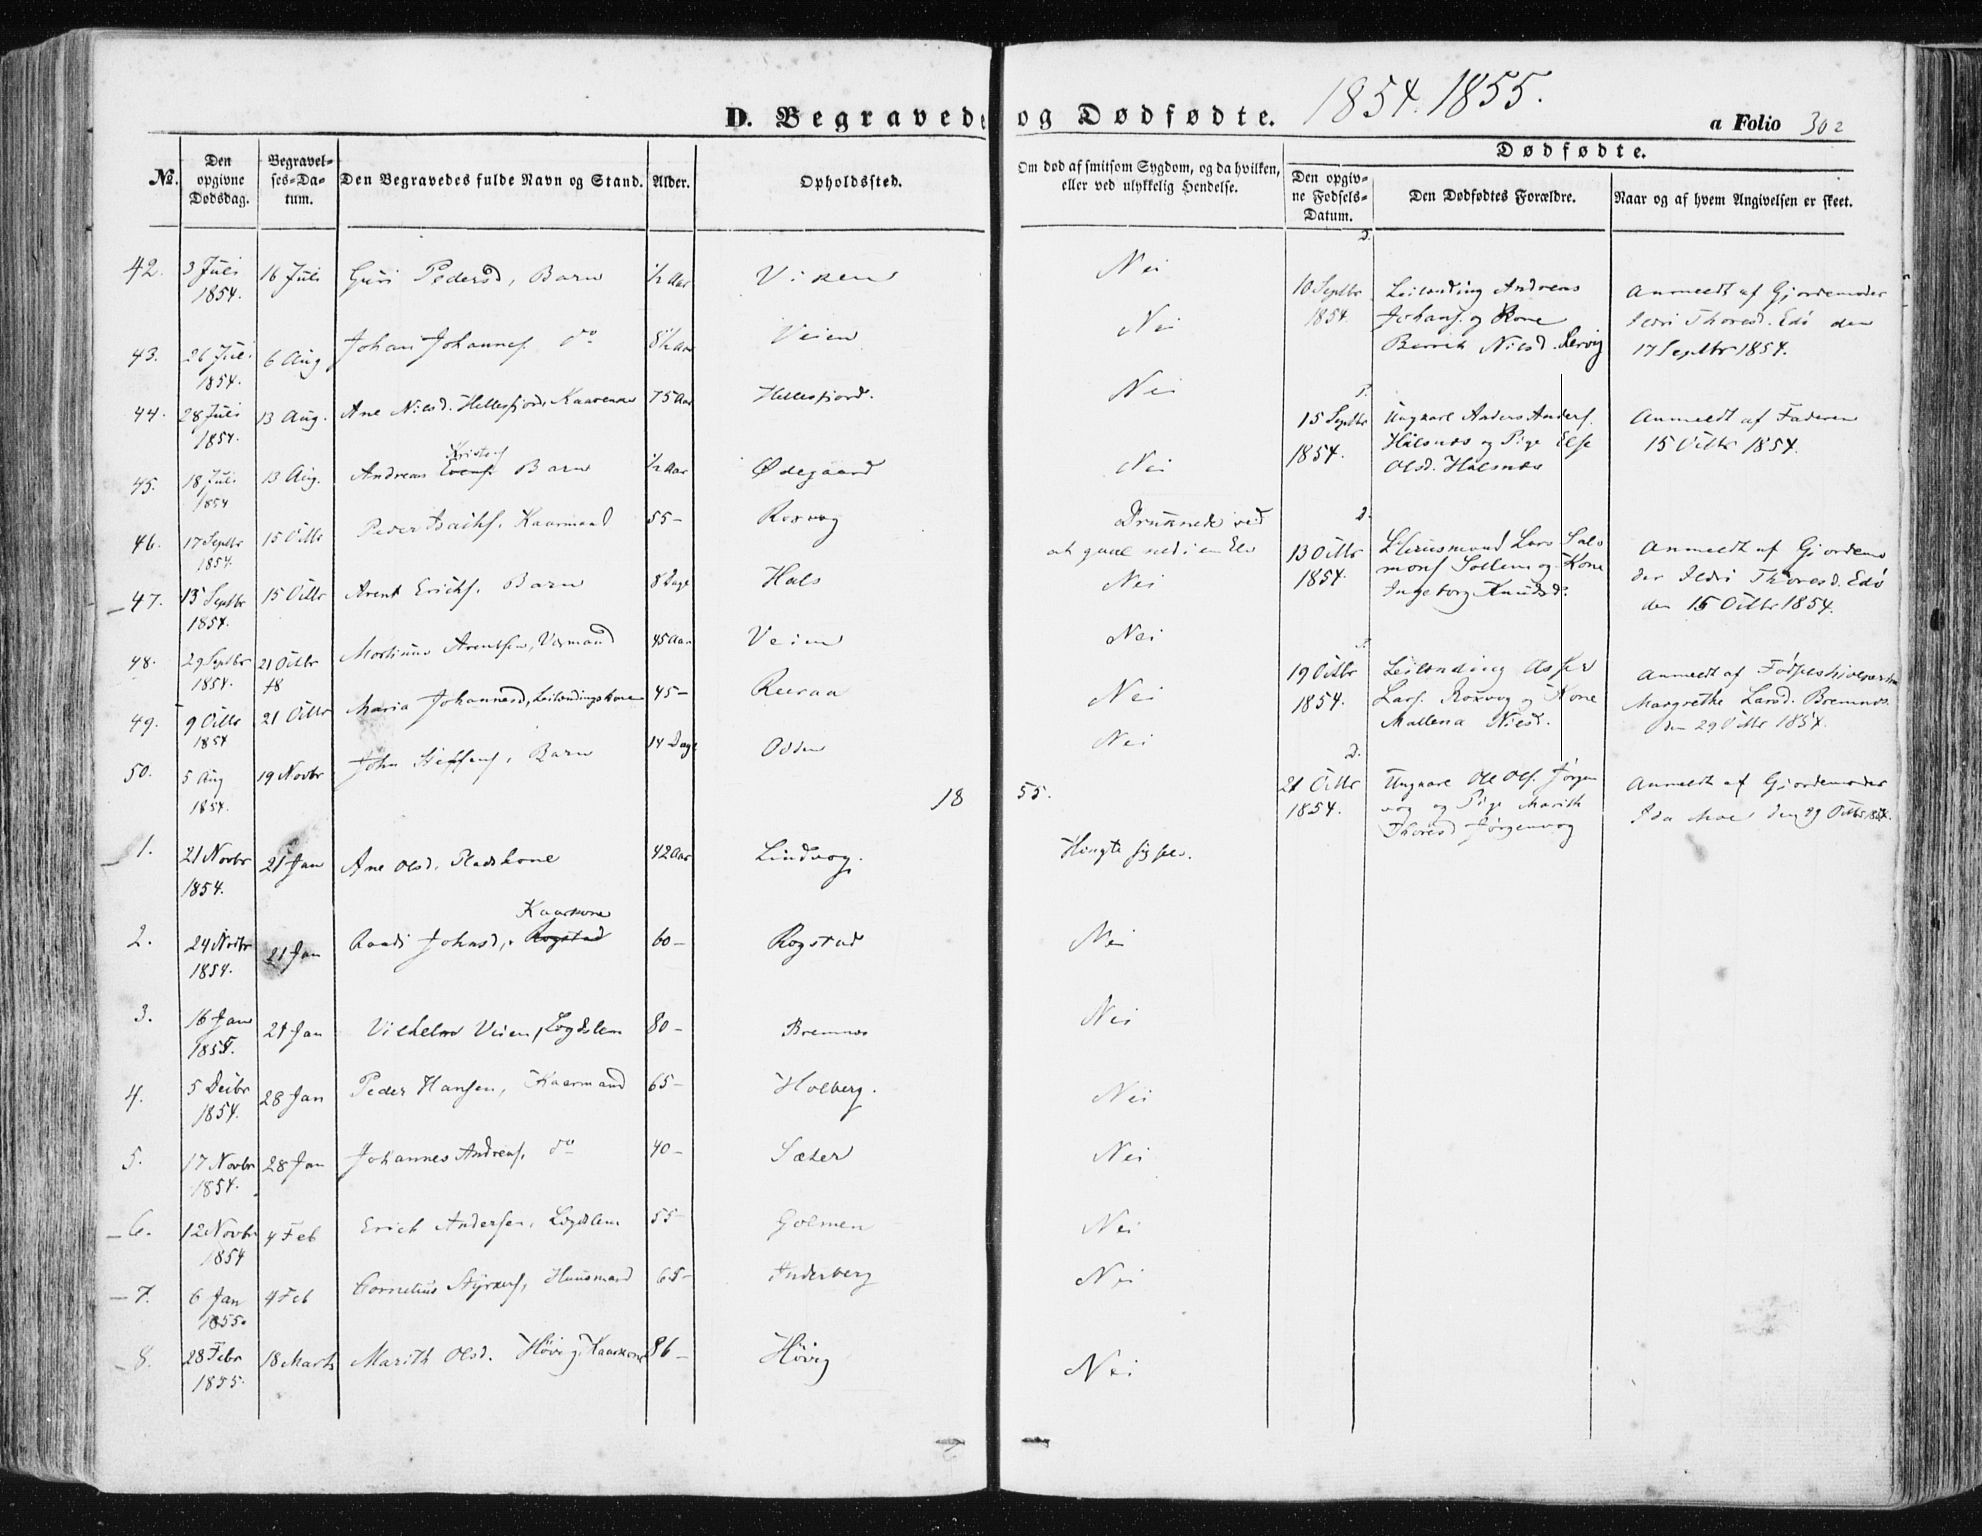 D. Begravede og Dødfødte. 1854. 1855.
a Folio 302
№.
Den opgivne Dødsdag.
Begravelses-Datum.
Den Begravedes fulde Navn og Stand.
Alder.
Opholdssted.
Om død af smitsom Sygdom, og da hvilken, eller ved ulykkelig Hendelse.
Dødfødte.
Den opgivne Fødsels-Datum.
Den Dødfødtes Forældre.
Naar og af hvem Angivelsen er skeet.
42. 3 Juli 1854. 16 Juli Guri Pedersd, Barn ½ Aar Viken Nei
43. 26 Juli 1854. 6 Aug Johan Johannes. do 8½ Aar Veien Nei
44. 28 Juli 1854. 13 Aug. Ane Nilsd. Hellesfjord, Kaarenke 75 Aar Hellesfjord. Nei
45. 18 Juli 1854 13 Aug. Andreas Evens. Kristis Barn ½ Aar Ødegaard Nei
46. 17 Septbr 1854. 15 Octbr Peder Isachs, Kaarmand 55- Roxvog Druknede ved at gaae ned i en Elv
47. 13 Septbr 1854. 15 Octbr Arent Erichs. Barn 8 Dage Hals Nei
48. 29 Septbr 1854. 21 Octbr Mortinus Arentsen, 45 Aar Veien Nei
49. 9 Octbr 1854 21 Octbr Maria Johannesd, Leilændingskone 45- Reeraa Nei
50. 5 Aug 1854. 19 Novbr John Steffens, Barn 14 Dage Odden Nei
1855.
1. 21 Novbr 1854. 21 Jan Ane Olsd. Pladskone 42 Aar Lindvog. Hængte sig selv.
2. 24 Novbr 1854. 21 Jan Raadi Johnsd, Rogstad Kaarkone 60- Rogstad Nei
3. 16 Jan 1855. 21 Jan Vilhelm Veien, Lægdslem 80- Bremnes Nei
4. 5 Decbr 1854. 28 Jan Peder Hansen, Kaarmand 65- Holberg. Nei
5. 17 Novbr 1854. 28 Jan Johannes Andreas. do 40- Sæter Nei
6. 12 Novbr 1854 4 Feb Erich Andersen, Lægdslem 55- Golmen Nei
7. 6 Jan 1855. 4 Feb Cornelius Styrkers, Huusmand 65- Inderberg Nei
8. 28 Febr 1855. 18 Marts Marith Olsd. Høvig, Kaarkone 86- Høvig Nei
D.
10 Septbr 1854. Leilænding Andreas Johans. og Kone Berith Nilsd. Anmeldt af Gjordemoder Ildri Thoresd. Edø den 17 Septbr 1854.
P.
15 Septbr 1854. Ungkarl Anders Anders. Halsnæs og Pige Else Olsd. Halsnæs Anmeldt af Faderen 15 Octbr 1854.
D.
13 Octbr 1854. Huusmand Lars Salomons Sollem og Kone Ingeborg Knudsd. Anmeldt af Gjordemoder Ildri Thoresd. Edø den 15 Octbr 1854.
P.
19 Octbr 1854. Leilænding Asker Lars. Roxvog og Kone Mallena Nilsd. Anmeldt af Fødselshielpersken Margrethe Larsd. Bremnes den 29 Octbr 1854.
D.
21 Octbr 1854. Ungkarl Ole Ols. Jørgenvog og Pige Marith Thoresd Jørgenvog Anmeldt af Gjordemoder Ida Moe den 29 Octbr 1854.